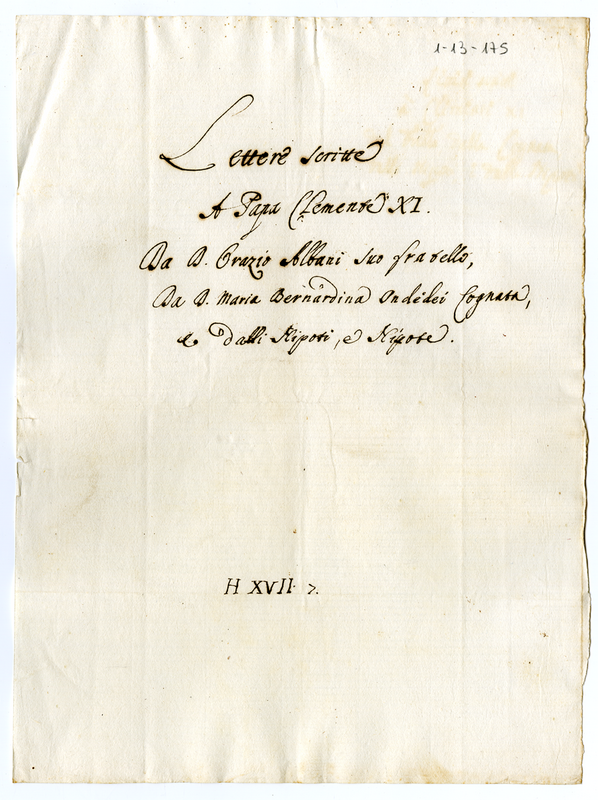 1-13-175
Lettere scritte
A Papa Clemente XI.
Da D. Orazio Albani suo fratello,
Da D. Maria Bernardina Ondedei Cognata,
e dalli Nipoti, e Nipote.
H XVII 7.